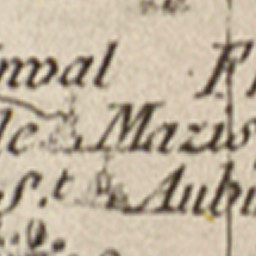 nval F
le Mazis
S.t Aubi